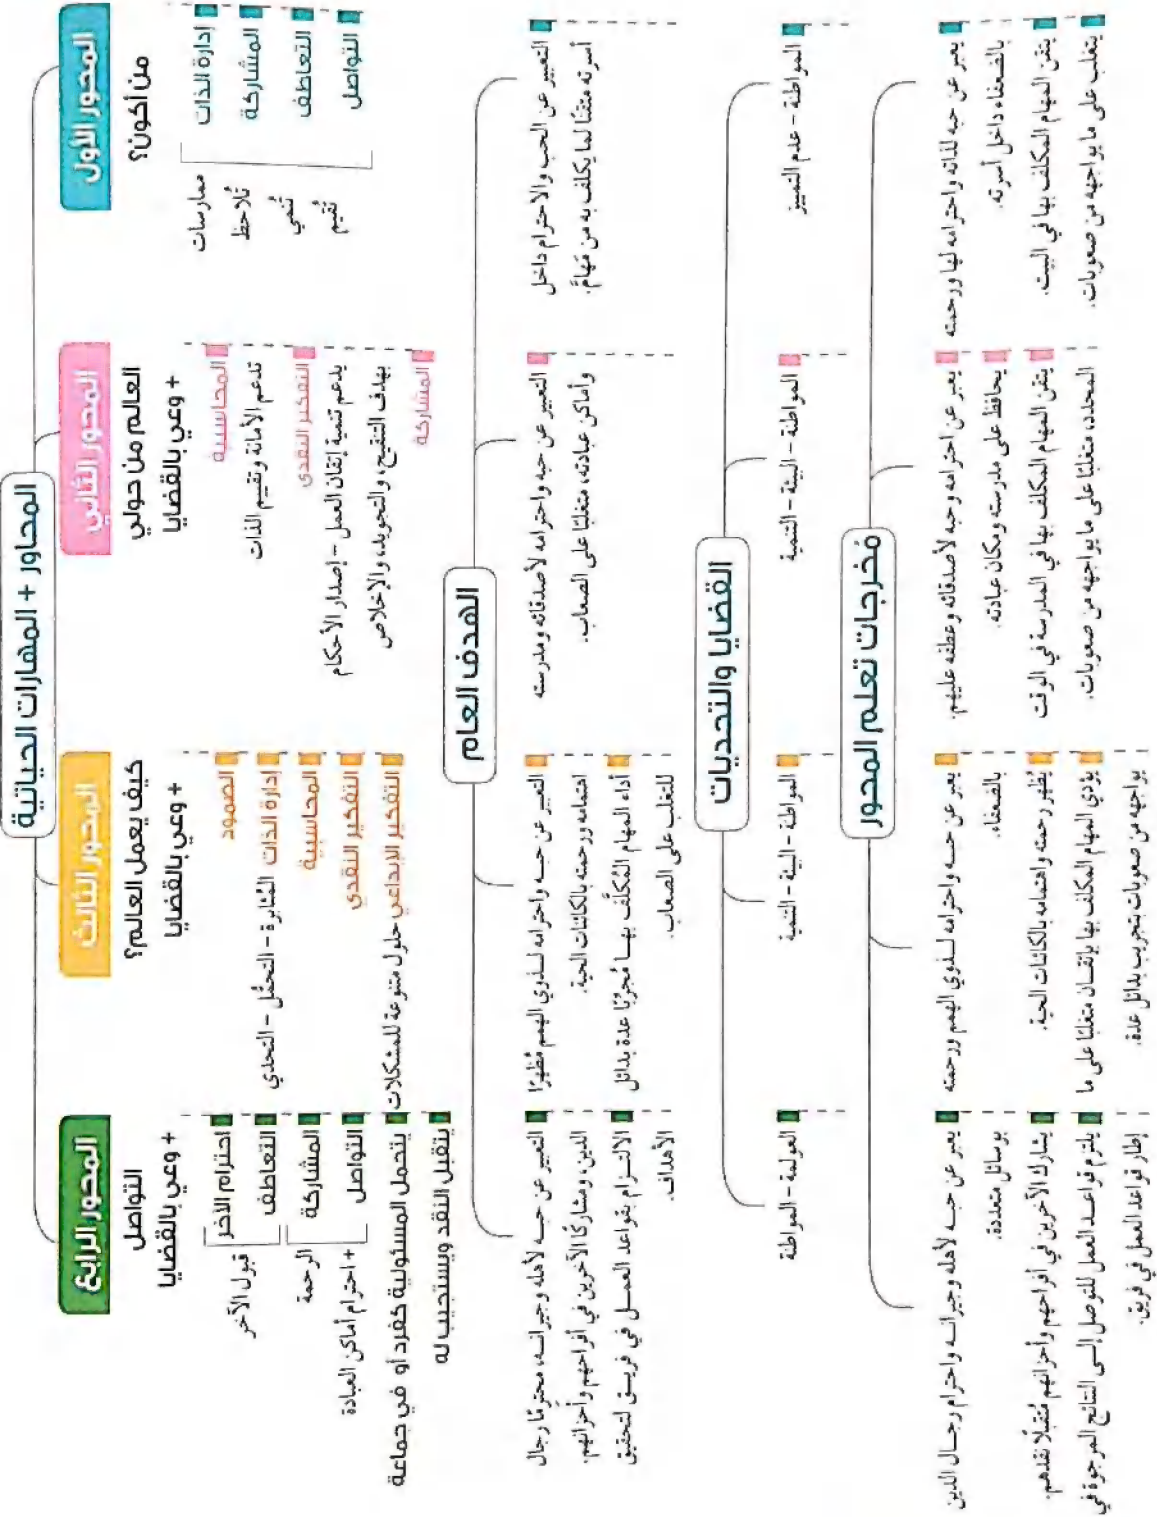 المحاور + المهارات الحياتية
المحور الأول
من أكون؟
إدارة الذات
المشاركة
التعاطف
التواصل
ممارسات
تُلاحظ
تُنمي
تُقيم
المحور الثاني
العالم من حولي
+ وعي بالقضايا
المحاسبية
تدعم الأمانة وتقييم الذات
التفكير النقدي
يدعم تنمية إتقان العمل - إصدار الأحكام
بهدف التنقيح، والتجويد، والإخلاص
المشاركة
المحور الثالث
كيف يعمل العالم؟
+ وعي بالقضايا
الصمود
إدارة الذات المُثابرة - التحمُّل - التحدي
المحاسبية
التفكير النقدي
التفكير الإبداعي حلول متنوعة للمشكلات
المحور الرابع
التواصل
+ وعي بالقضايا
احترام الآخر
التعاطف
قبول الآخر
المشاركة
التواصل
الرحمة
+ احترام أماكن العبادة
يتحمل المسئولية كفرد أو في جماعة
يتقبل النقد ويستجيب له
الهدف العام
التعبير عن الحب والاحترام داخل
أسرته متقنًا لما يكلف به من مَهامَّ.
التعبير عن حبه واحترامه لأصدقائه ومدرسته
وأماكن عبادته، متغلبًا على الصعاب.
التعبير عن حبه واحترامه لذوي الهمم مُظهِرًا
اهتمامه ورحمته بالكائنات الحية.
أداء المهام المُكلَّف بها مُجرِّبًا عدة بدائل
للتغلب على الصعاب.
التعبير عن حبه لأهله وجيرانه، محترمًا رجال
الدين، ومشاركًا الآخرين في أفراحهم وأحزانهم.
الالتزام بقواعد العمل في فريق لتحقيق
الأهداف.
القضايا والتحديات
المواطنة - عدم التمييز
المواطنة - البيئة - التنمية
المواطنة - البيئة - التنمية
العولمة - المواطنة
مُخرجات تعلم المحور
يعبر عن حبه لذاته واحترامه لها ورحمته
بالضعفاء داخل أسرته.
يتقن المهام المكلف بها في البيت.
يتغلب على ما يواجهه من صعوبات.
يعبر عن احترامه وحبه لأصدقائه وعطفه عليهم.
يحافظ على مدرسته ومكان عبادته.
يتقن المهام المكلف بها في المدرسة في الوقت
المحدد، متغلبًا على ما يواجهه من صعوبات.
يعبر عن حبه واحترامه لذوي الهمم ورحمته
بالضعفاء.
يُظهر رحمته واهتمامه بالكائنات الحية.
يؤدي المهام المكلف بها بإتقان متغلبًا على ما
يواجهه من صعوبات بتجريب بدائل عدة.
يعبر عن حبه لأهله وجيرانه واحترام رجال الدين
بوسائل متعددة.
يشارك الآخرين في أفراحهم وأحزانهم مُتقبلًا نقدهم.
يلتزم قواعد العمل للتوصل إلى النتائج المرجوة في
إطار قواعد العمل في فريق.